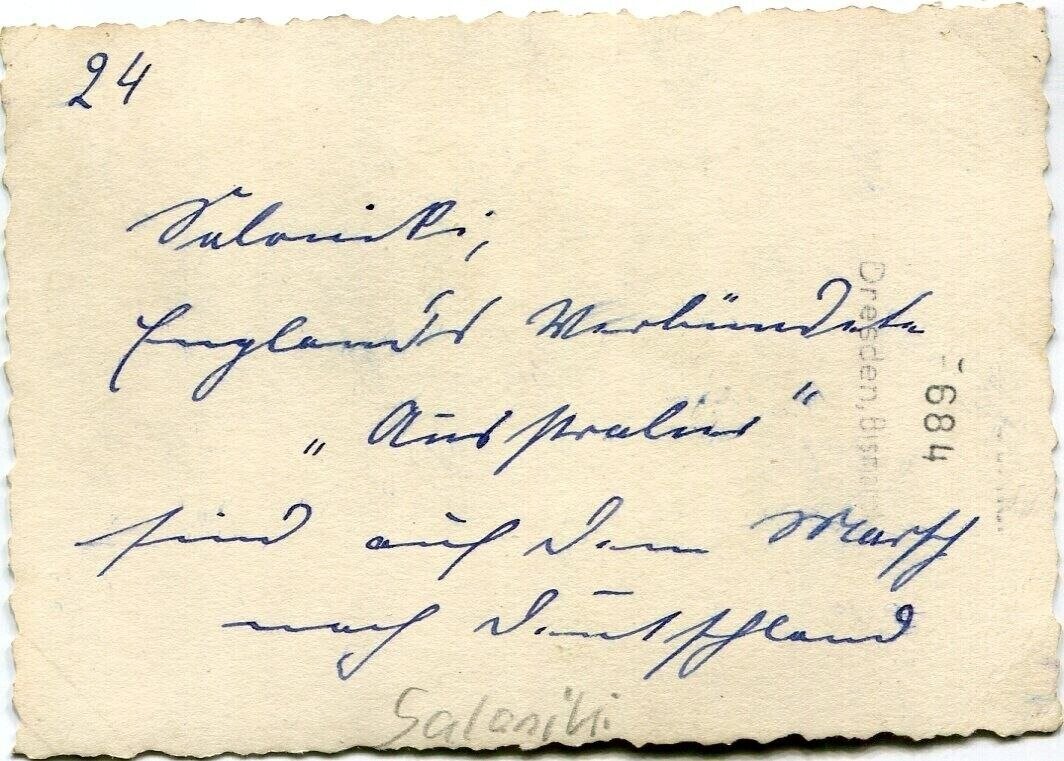 24
Saloniki,
England's Verbündete
„Australier"
sind auf dem Marsch
nach Deutschland
Saloniki
Dresden, Bismar
684